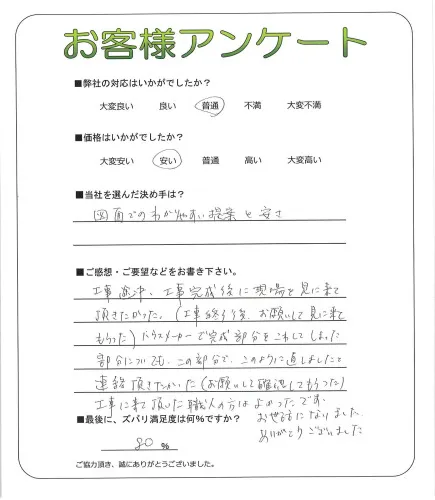 お客様アンケート
■弊社の対応はいかがでしたか?
大変良い 良い 普通 不満 大変不満
■価格はいかがでしたか?
大変安い 安い 普通 高い 大変高い
■当社を選んだ決め手は?
図面でのわかりやすい提案と安さ
■ご感想・ご要望などをお書き下さい。
工事途中、工事完成後に現場を見に来て
頂きたかった。(工事終了後、お願いして見に来て
もらった)ハウスメーカーで完成部分をこわしてしまった
部分についても、この部分で、このように直しましたと
連絡頂きたかった(お願いして確認してもらった)
工事に来て頂いた職人の方はよかったです。
■最後に、ズバリ満足度は何%ですか?
お世話になりました。
ありがとうございました
80 %
ご協力頂き、誠にありがとうございました。